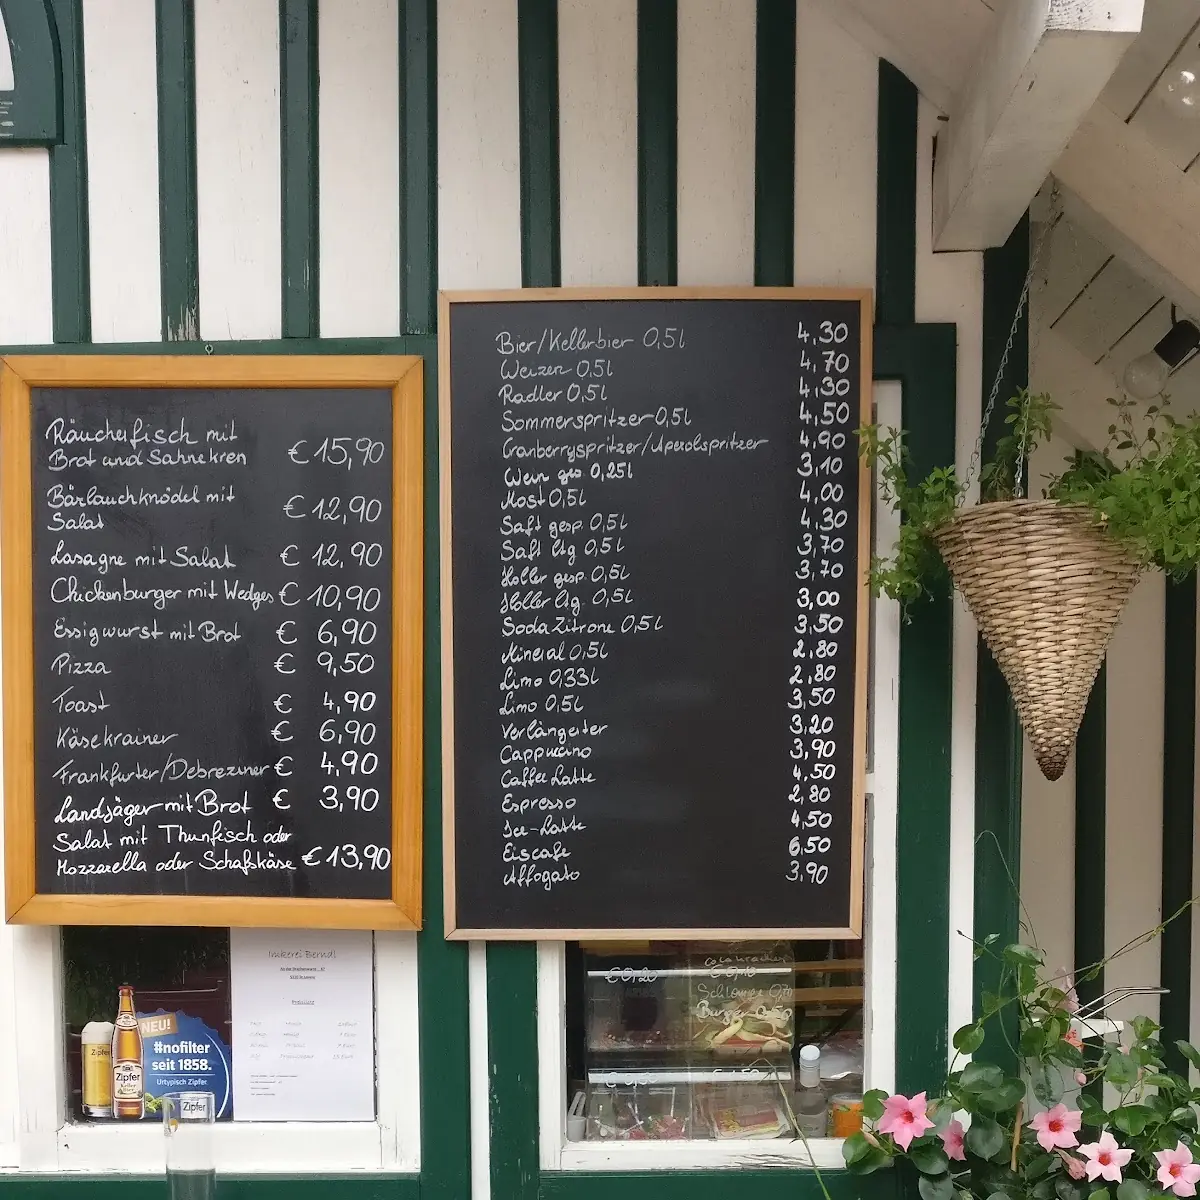 Räucherfisch mit
Brot und Sahnekren € 15,90
Bärlauchknödel mit
Salat € 12,90
Lasagne mit Salat € 12,90
Chickenburger mit Wedges € 10,90
Essigwurst mit Brot € 6,90
Pizza € 9,50
Toast € 4,90
Käsekrainer € 6,90
Frankfurter/Debreziner € 4,90
Landjäger mit Brot € 3,90
Salat mit Thunfisch oder
Mozzarella oder Schafskäse € 13,90
Bier/Kellerbier 0,5l 4,30
Weizen 0,5l 4,70
Radler 0,5l 4,30
Sommerspritzer 0,5l 4,50
Cranberryspritzer/Aperolspritzer 4,90
Wein ges. 0,25l 3,10
Most 0,5l 4,00
Saft gesp. 0,5l 4,30
Saft ltg 0,5l 3,70
Holler gesp. 0,5l 3,70
Holler ltg. 0,5l 3,00
Soda Zitrone 0,5l 3,50
Mineral 0,5l 2,80
Limo 0,33l 2,80
Limo 0,5l 3,50
Verlängerter 3,20
Cappuccino 3,90
Caffee Latte 4,50
Espresso 2,80
Ice-Latte 4,50
Eiscafe 6,50
Affogato 3,90
Imkerei Berndl
Preisliste
NEU!
#nofilter
seit 1858.
Urtypisch Zipfer
Zipfer
Zipfer
Zipfer
€ 0,20